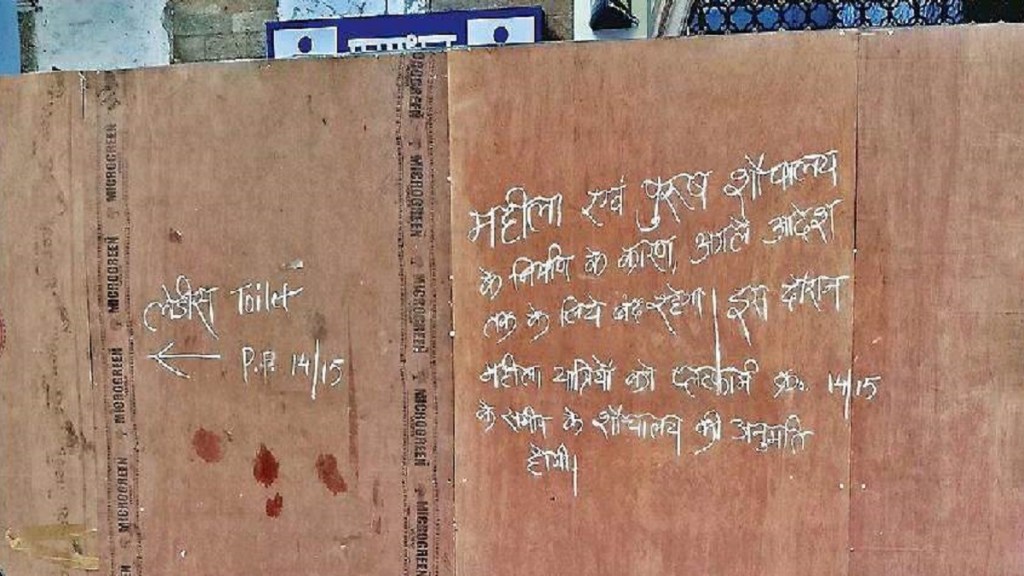 लेडीस Toilet
← P.P. 14/15
महीला एवं पुरुष शौचालय
के निर्माण के कारण, अगले आदेश
तक के लिये बंद रहेगा। इस दौरान
महीला यात्रियों को क्र. 14/15
के समीप के शौचालय की अनुमति
होगी।
MICROGREEN
MICROGREEN
MICROGREEN
MICROGREEN
MICROGREEN
MICROGREEN
MICROGREEN
MICROGREEN
MICROGREEN